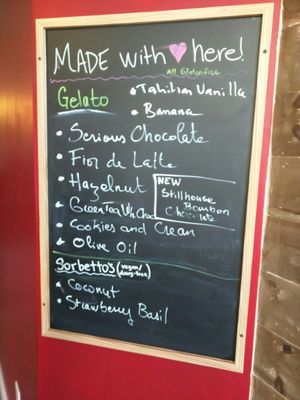 MADE with ♥ here!
All Glutenfree
Gelato
• Tahitian Vanilla
• Banana
• Serious Chocolate
• Fior de Latte
• Hazelnut
NEW
Stillhouse
Bourbon
Chocolate
• Green Tea Wh Choc
• Cookies and Cream
• Olive Oil
Sorbetto's (vegan/
dairy-free)
• Coconut
• Strawberry Basil